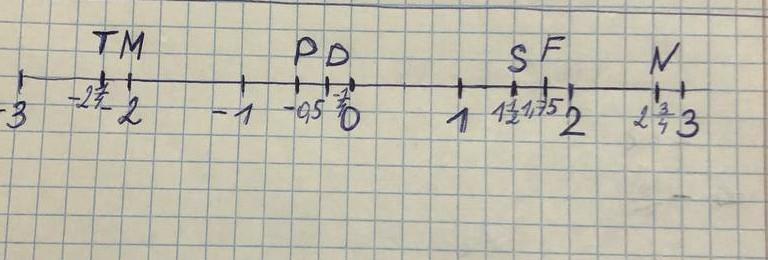 T M P D S F N
-3 -2 -1 -0,5 0 1 1½ 1,75 2 2¾ 3